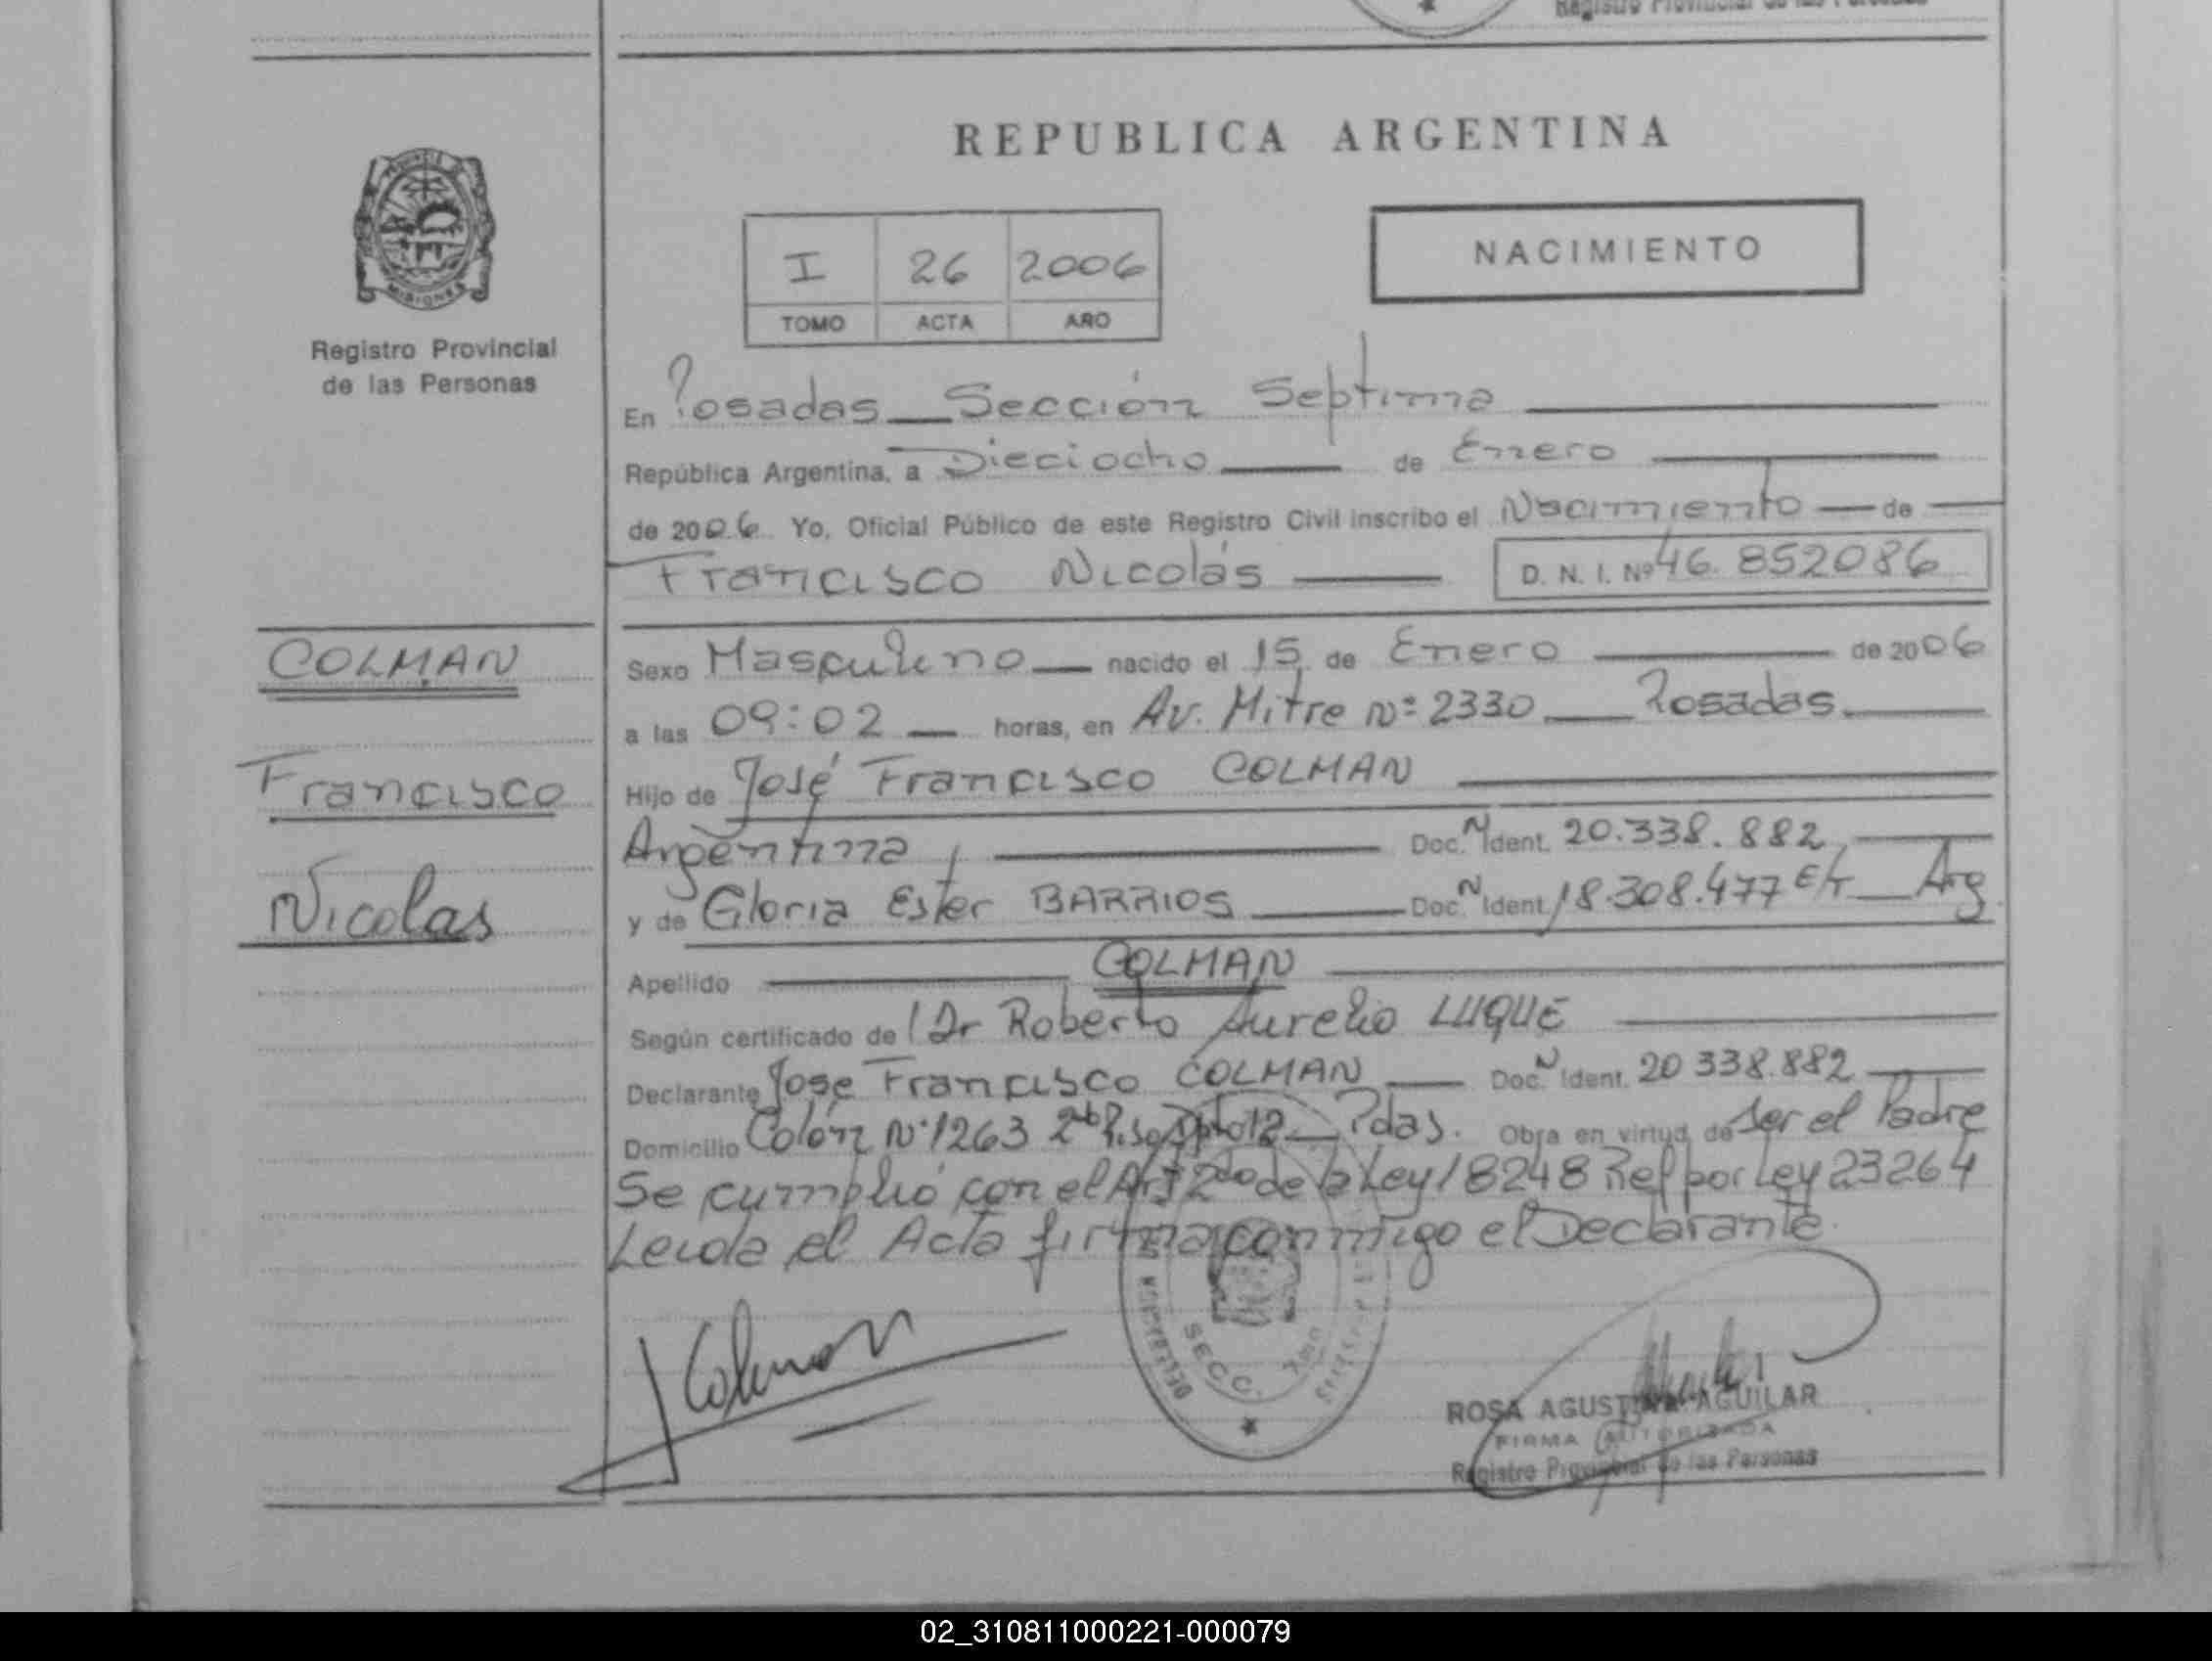 Registro Provincial de las Personas
REPUBLICA ARGENTINA
MISIONES
Registro Provincial
de las Personas
I 26 2006
TOMO ACTA AÑO
NACIMIENTO
En Posadas Sección Septima
República Argentina, a Dieciocho de Enero
de 2006 Yo, Oficial Público de este Registro Civil inscribo el Nacimiento de
Francisco Nicolás D. N. I. Nº 46.852086
COLMAN
Francisco
Nicolas
Sexo Masculino nacido el 15 de Enero de 2006
a las 09:02 horas, en Av. Mitre Nº 2330 Posadas.
Hijo de José Francisco COLMAN
Argentina Doc. N Ident. 20.338.882
y de Gloria Ester BARRIOS Doc. N Ident. 18.308.477 Arg
Apellido COLMAN
Según certificado de Dr Roberto Aurelio LUQUE
Declarante Jose Francisco COLMAN Doc. N Ident. 20 338.882
Domicilio Colón Nº 1263 2do Piso Dpto 12 Pdas. Obra en virtud de Ser el Padre
Se cumplió con el Art 2do de la Ley 18248 Ref por Ley 23264
Leida el Acta firma conmigo el Declarante.
J Colman
SECC.
ROSA AGUSTINA AGUILAR
FIRMA AUTORIZADA
Registro Provincial de las Personas
02_310811000221-000079